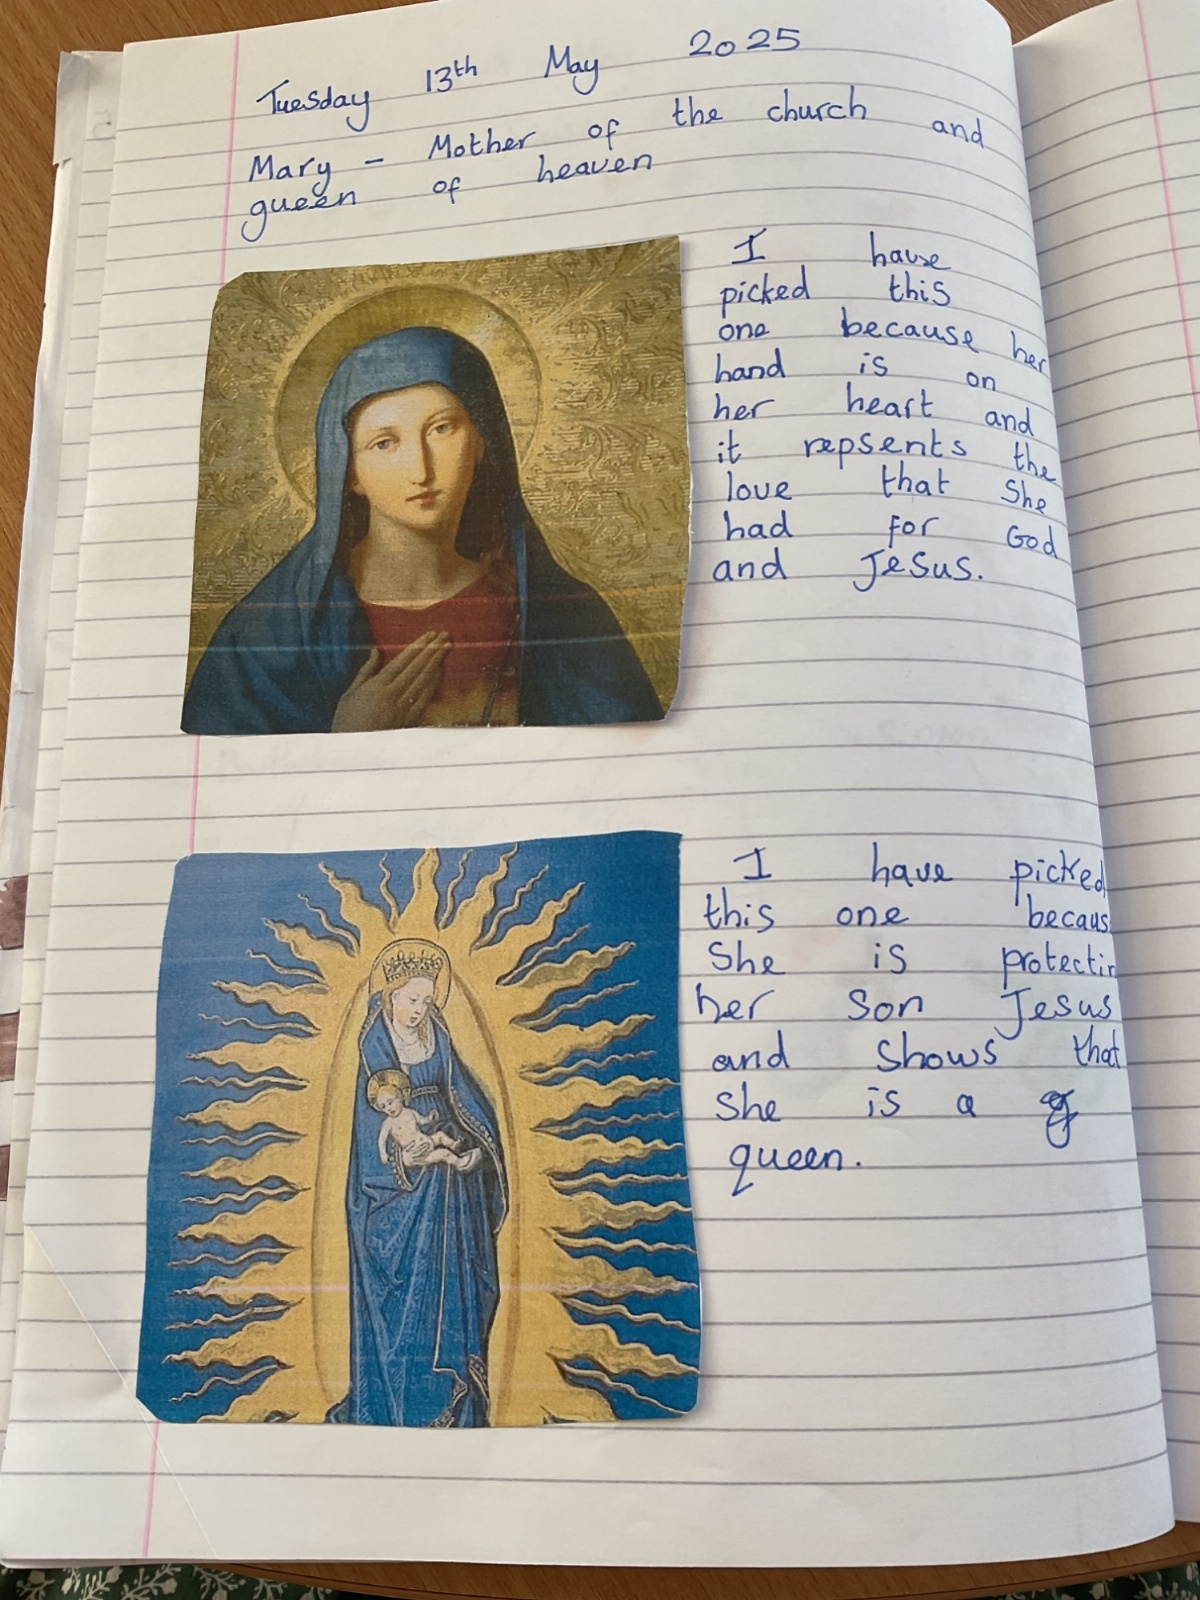 Tuesday 13th May 2025
Mary - Mother of the church and
queen of heaven
I have
picked this
one because her
hand is on
her heart and
it repsents the
love that She
had for God
and Jesus.
I have picked
this one becaus
She is protectin
her Son Jesus
and Shows that
She is a
queen.